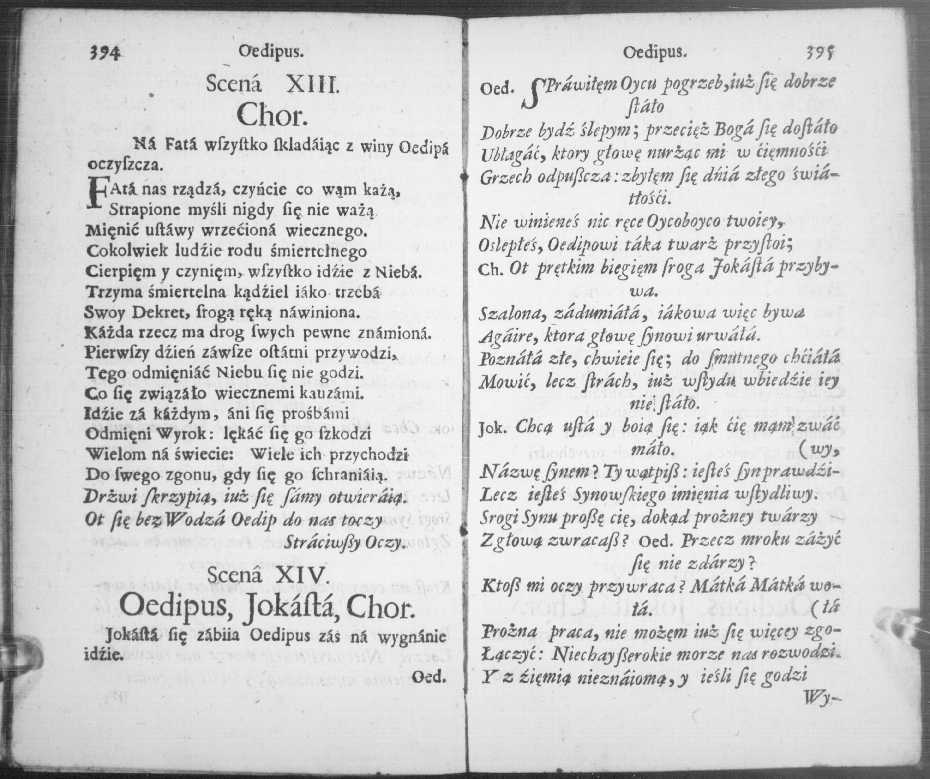 394 Oedipus.
Scená XIII.
Chor.
Ná Fatá wſzyſtko ſkladáiąc z winy Oedipá
oczyſzcza.
FAtá nas rządzá, czyńcie co wąm każą,
Strapione myśli nigdy ſię nie ważą
Mięnić uſtáwy wrzećioná wiecznego.
Cokolwiek ludźie rodu śmiertelnego
Cierpięm y czynięm, wſzyſtko idźie z Niebá.
Trzyma śmiertelna kądźiel iáko trzebá
Swoy Dekret, ſrogą ręką náwiniona.
Káżda rzecz ma drog ſwych pewne známioná.
Pierwſzy dźień záwſze oſtátni przywodzi,
Tego odmięniáć Niebu ſię nie godzi.
Co ſię związáło wiecznemi kauzámi.
Idźie zá káżdym, áni ſię prośbámi
Odmięni Wyrok: lękáć ſię go ſzkodzi
Wielom ná świecie: Wiele ich przychodzi
Do ſwego zgonu, gdy ſię go ſchraniáią.
Drzwi ſkrzypią, iuż ſię ſámy otwieráią.
Ot ſię bez Wodzá Oedip do nas toczy
Stráciwßy Oczy.
Scená XIV.
Oedipus, Jokáſtá, Chor.
Jokáſtá ſię zábiia Oedipus zás ná wygnánie
idźie.
Oed.
Oedipus. 395
Oed. SPráwiłęm Oycu pogrzeb,iuż ſię dobrze
ſtáło
Dobrze bydź ślepym; przecięż Bogá ſię doſtáło
Ubłagáć, ktory głowę nurżąc mi w ćięmnośći
Grzech odpußcza: zbyłęm ſię dńiá złego świá-
tłośći.
Nie winieneś nic ręce Oycoboyco twoiey,
Oslepłeś, Oedipowi táka twarż przyſtoi;
Ch. Ot prętkim biegięm ſroga Jokáſtá przyby-
wa.
Szalona, zádumiáłá, iákowa więc bywa
Agáire, ktora głowę ſynowi urwáłá.
Poznáłá złe, chwieie ſię; do ſmutnego chćiáłá
Mowić, lecz ſtrách, iuż wſtydu wbiedźie iey
nie ſtáło.
Jok. Chcą uſtá y boią ſię: iąk ćię mąm zwáć
máło. (wy,
Názwę ſynem? Ty wątpiß: ieſteś ſyn prawdźi-
Lecz ieſteś Synowſkiego imięnia wſtydliwy.
Srogi Synu proßę cię, dokąd prożney twárzy
Z głową zwracaß? Oed. Przecz mroku záżyć
ſię nie zdárzy?
Ktoß mi oczy przywraca? Mátká Mátká wo-
łá. (łá
Prożna praca, nie możęm iuż ſię więcey zgo-
Łączyć: Niechay ßerokie morze nas rozwodzi.
Y z źięmią nieznáiomą, y ieśli ſię godzi
Wy-